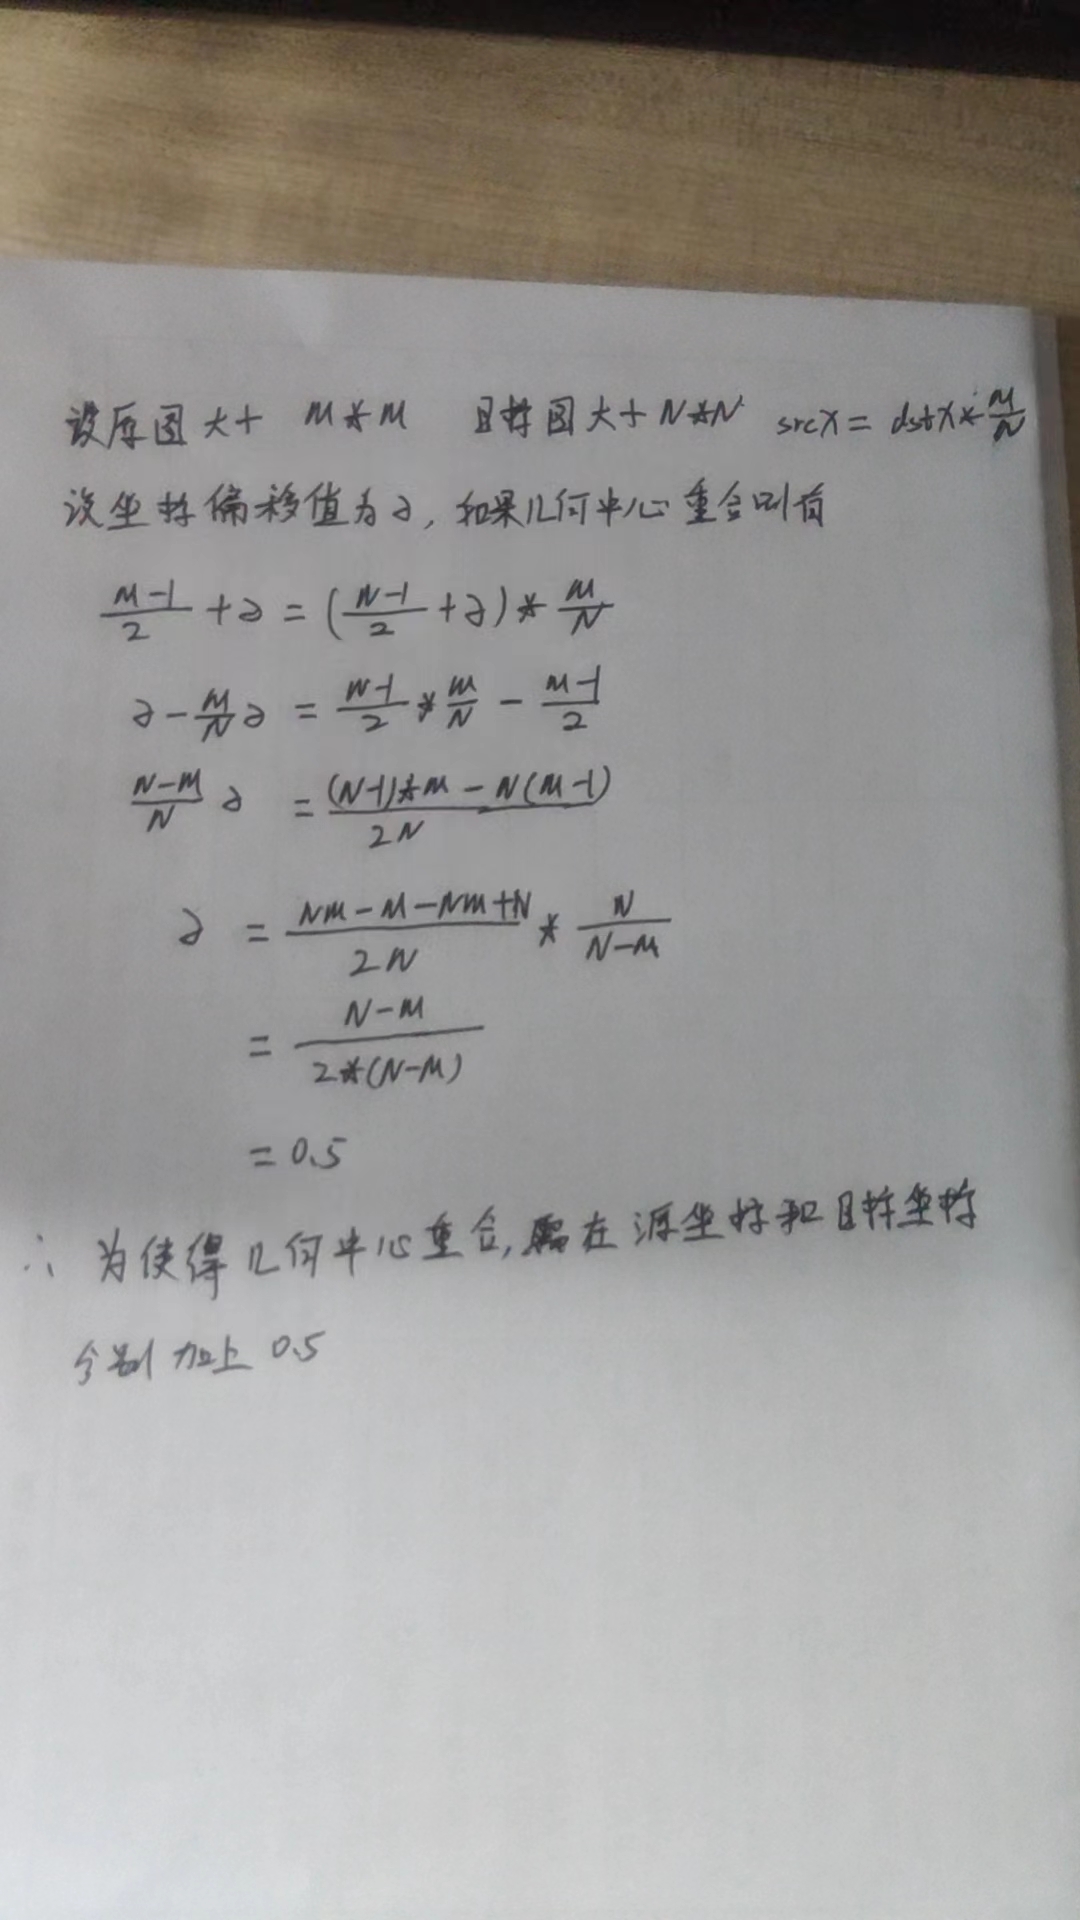 设原图大小 M*M 目标图大小 N*N srcX = dstX * M/N
设坐标偏移值为∂, 如果几何中心重合则有
(M-1)/2 + ∂ = ((N-1)/2 + ∂) * M/N
∂ - M/N ∂ = (N-1)/2 * M/N - (M-1)/2
(N-M)/N ∂ = ((N-1)*M - N(M-1))/2N
∂ = (NM-M-NM+N)/2N * N/(N-M)
= (N-M)/(2*(N-M))
= 0.5
∴ 为使得几何中心重合, 需在源坐标和目标坐标
分别加上 0.5